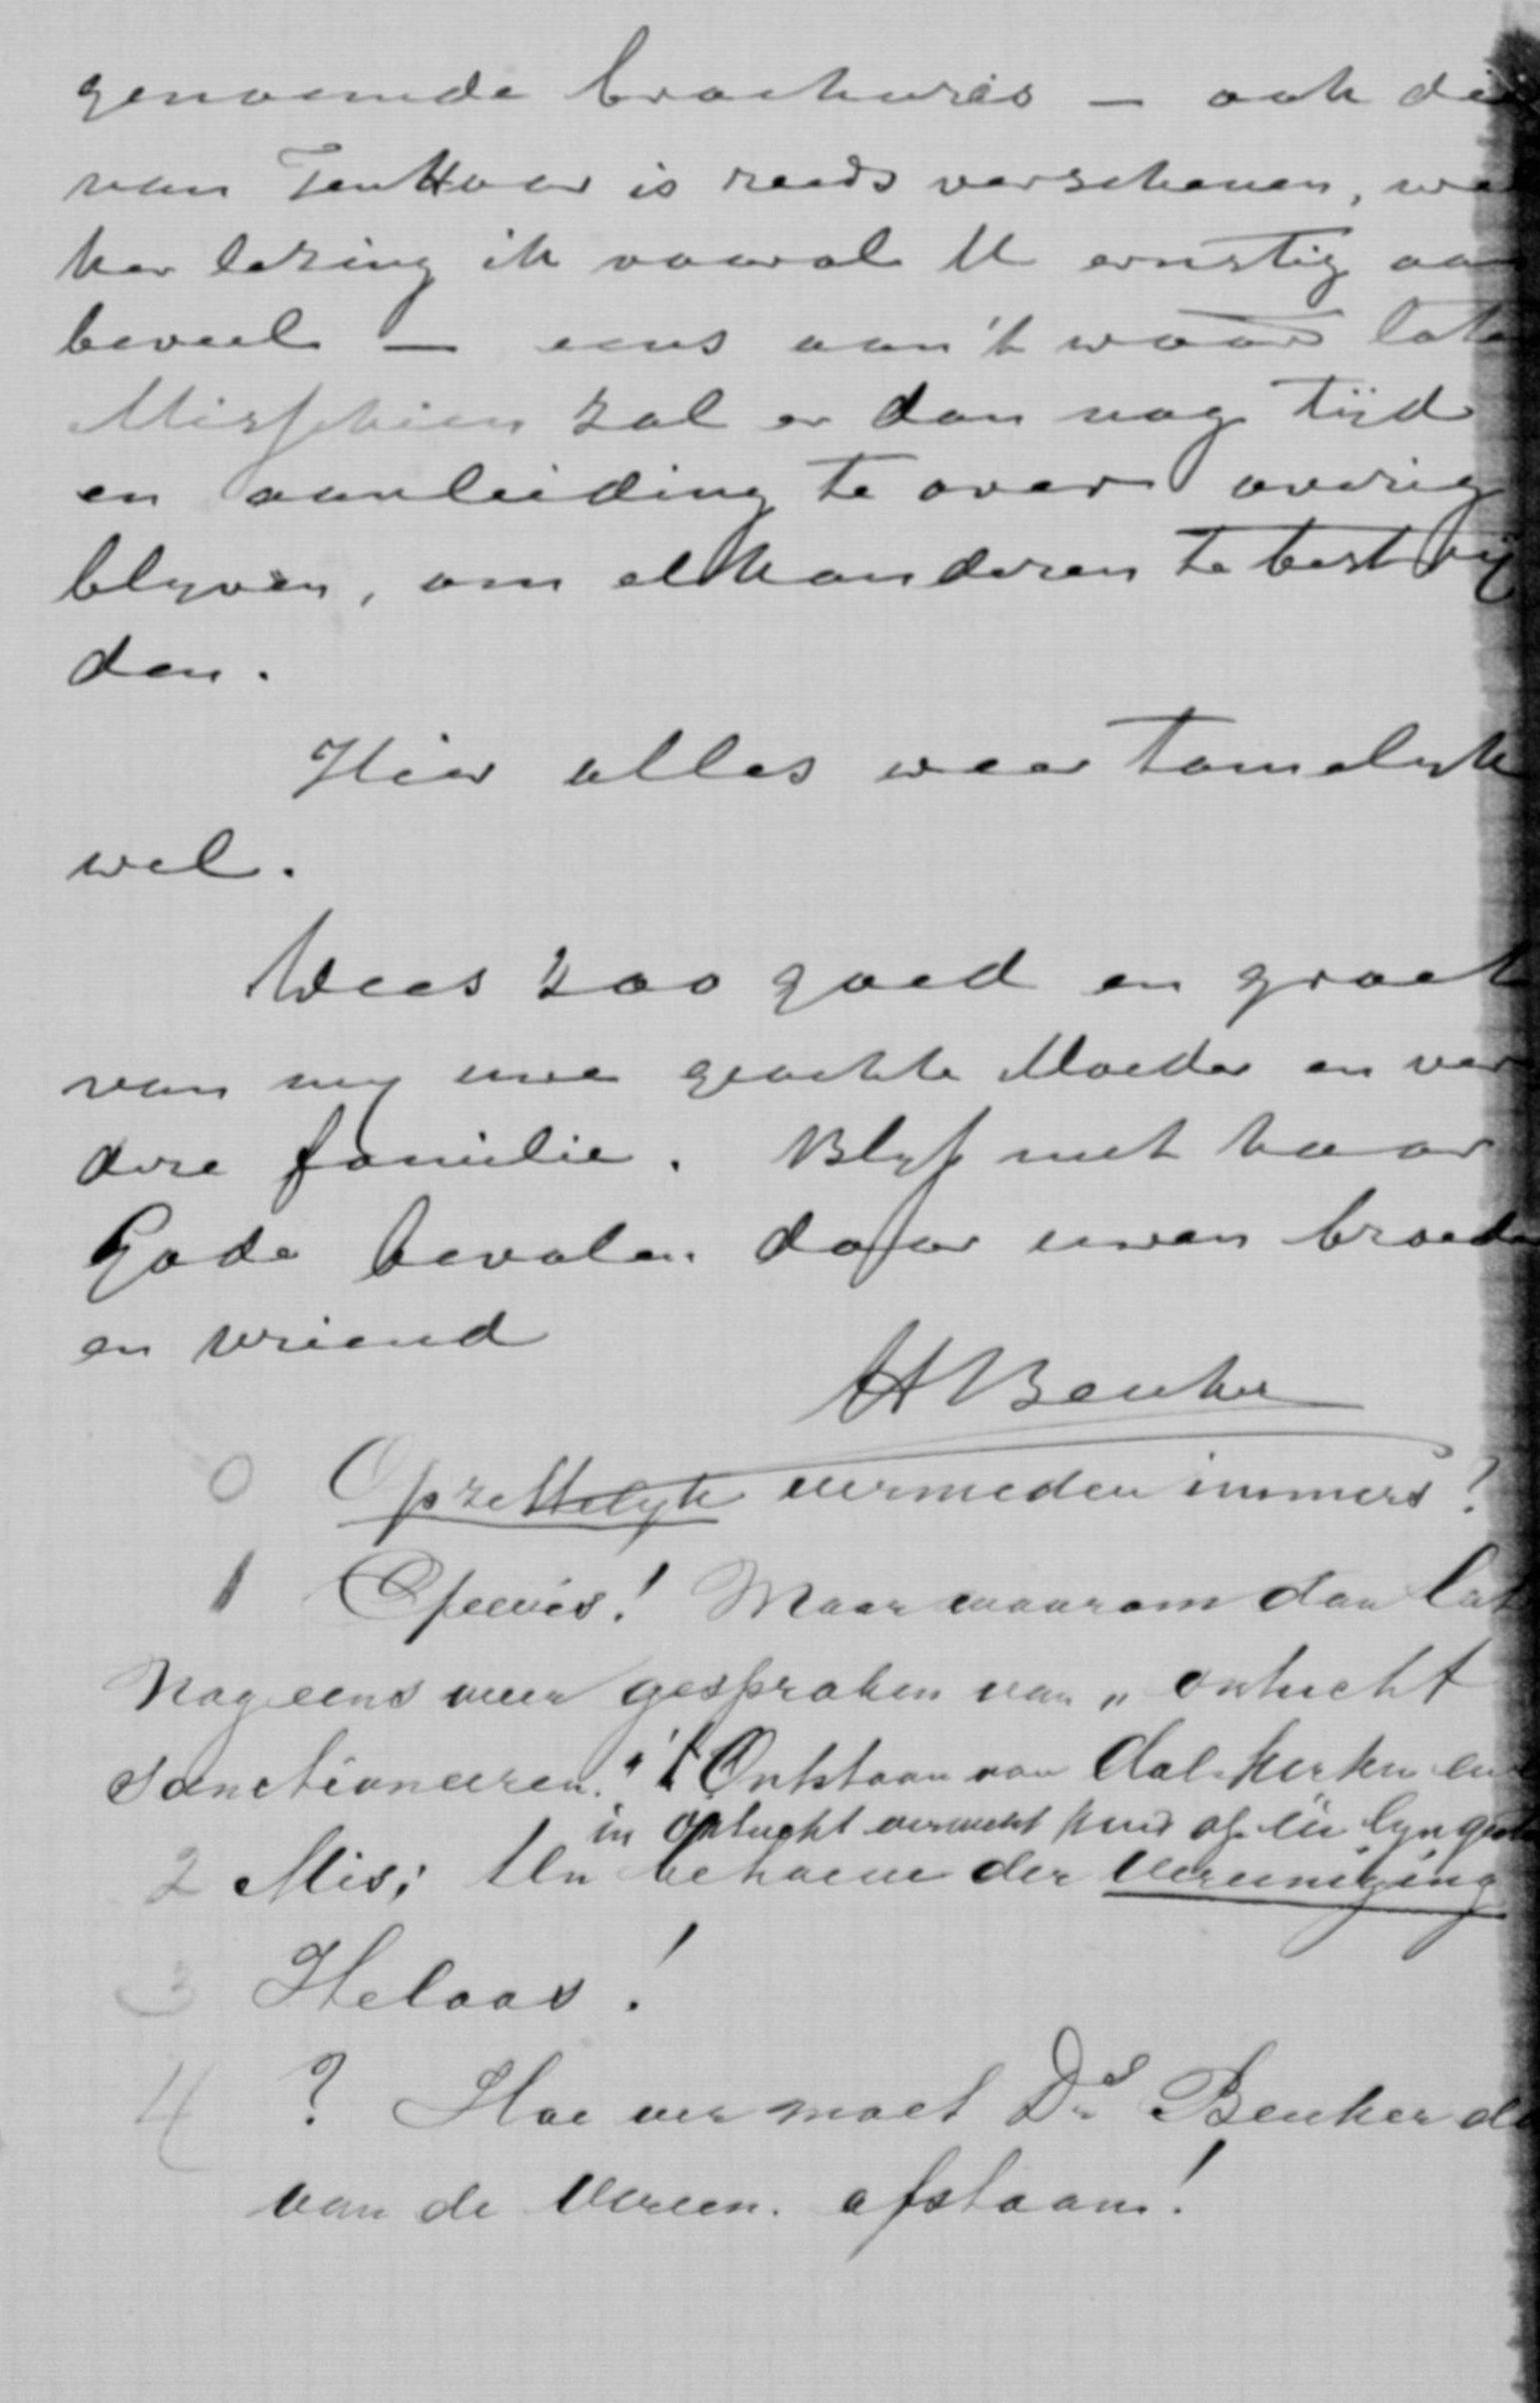 genoemde brochures — ook die
van Ten Hoor is reeds verschenen, we
ker lezing ik vooral U ernstig aan
beveel — eens aan 't woord late
Misschien zal er dan nog tijd
en aanleiding te over overig
blyven, om elkanderen te bestrij
den.
Hier alles weer tamelyk
wel.
Wees zoo goed en groet
van my uwe geachte Moeder en ver
dere familie. Blyf met haar
Gode bevolen door uwen broeder
en vriend
H Beuker
0 Opzettelyk vermeden immers?
1 Maar waarom dan lat
Nog eens weer gesproken van „ontucht
sanctioneeren." Ontstaan van dol. kerken
in ontucht verwekt
2 Mis; Un behoeve der Vereeniging
3 Helaas!
4 ? Hoe ver moet Ds Beuker d
van de Vereen. afstaan!